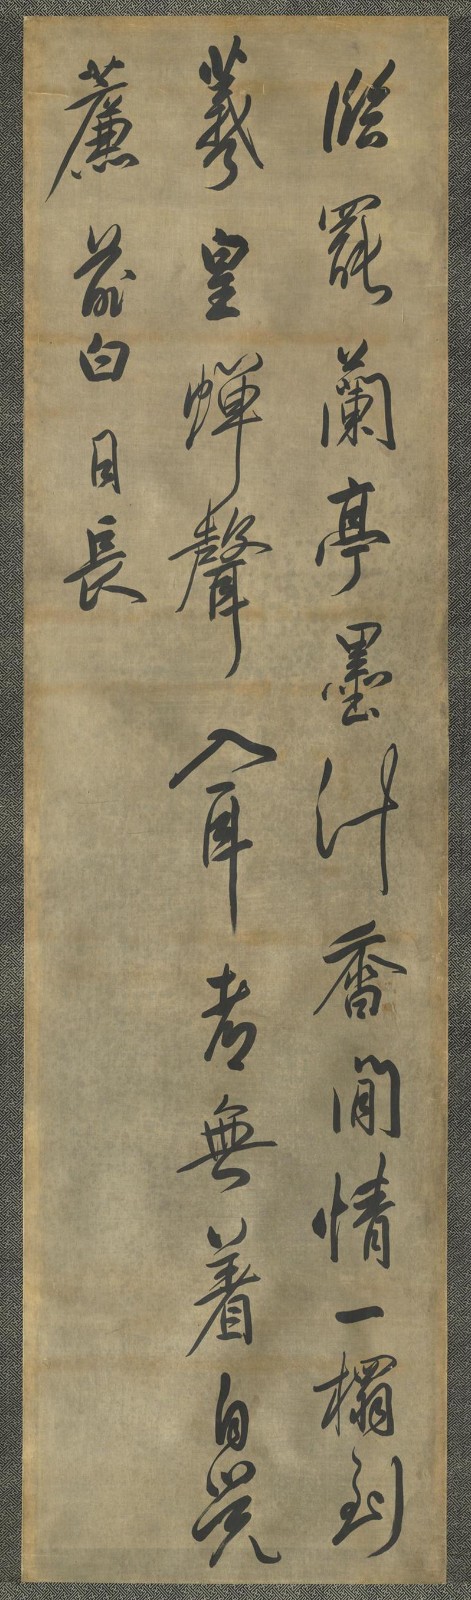 臨罷蘭亭墨汁香閒情一榻到
羲皇蟬聲入耳者無着自覺
簾前白日長